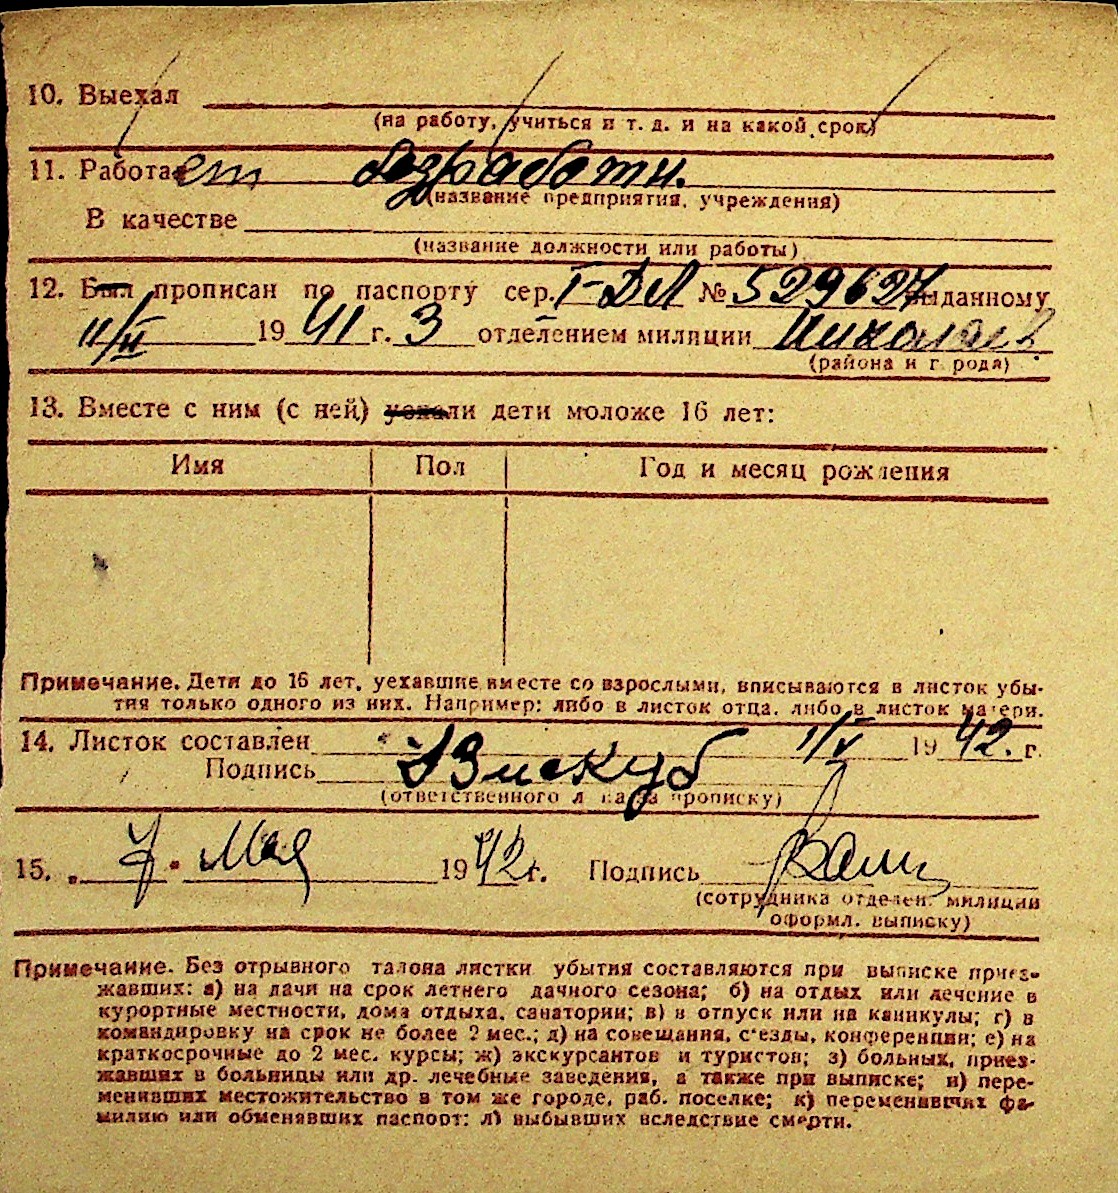 10. Выехал
(на работу, учиться и т. д. и на какой срок)
11. Работает безработн.
(название предприятия, учреждения)
В качестве
(название должности или работы)
12. Был прописан по паспорту сер. I-ДЛ № 529627 выданному
11/II 1941 г. 3 отделением милиции Николаев
(района и города)
13. Вместе с ним (с ней) уехали дети моложе 16 лет:
Имя Пол Год и месяц рождения
Примечание. Дети до 16 лет, уехавшие вместе со взрослыми, вписываются в листок убы-
тия только одного из них. Например: либо в листок отца, либо в листок матери.
14. Листок составлен 1/V 1942. г.
Подпись
(ответственного лица за прописку)
15. „7" Мая 1942 г. Подпись
(сотрудника отделен. милиции
оформл. выписку)
Примечание. Без отрывного талона листки убытия составляются при выписке приез-
жавших: а) на дачи на срок летнего дачного сезона; б) на отдых или лечение в
курортные местности, дома отдыха, санатории; в) в отпуск или на каникулы; г) в
командировку на срок не более 2 мес.; д) на совещания, с'езды, конференции; е) на
краткосрочные до 2 мес. курсы; ж) экскурсантов и туристов; з) больных, приез-
жавших в больницы или др. лечебные заведения, а также при выписке; и) пере-
менивших местожительство в том же городе, раб. поселке; к) переменивших фа-
милию или обменявших паспорт; л) выбывших вследствие смерти.